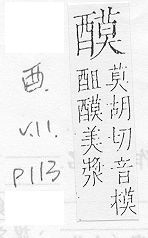 莫胡切音模
美漿
酉.
v.11.
p113